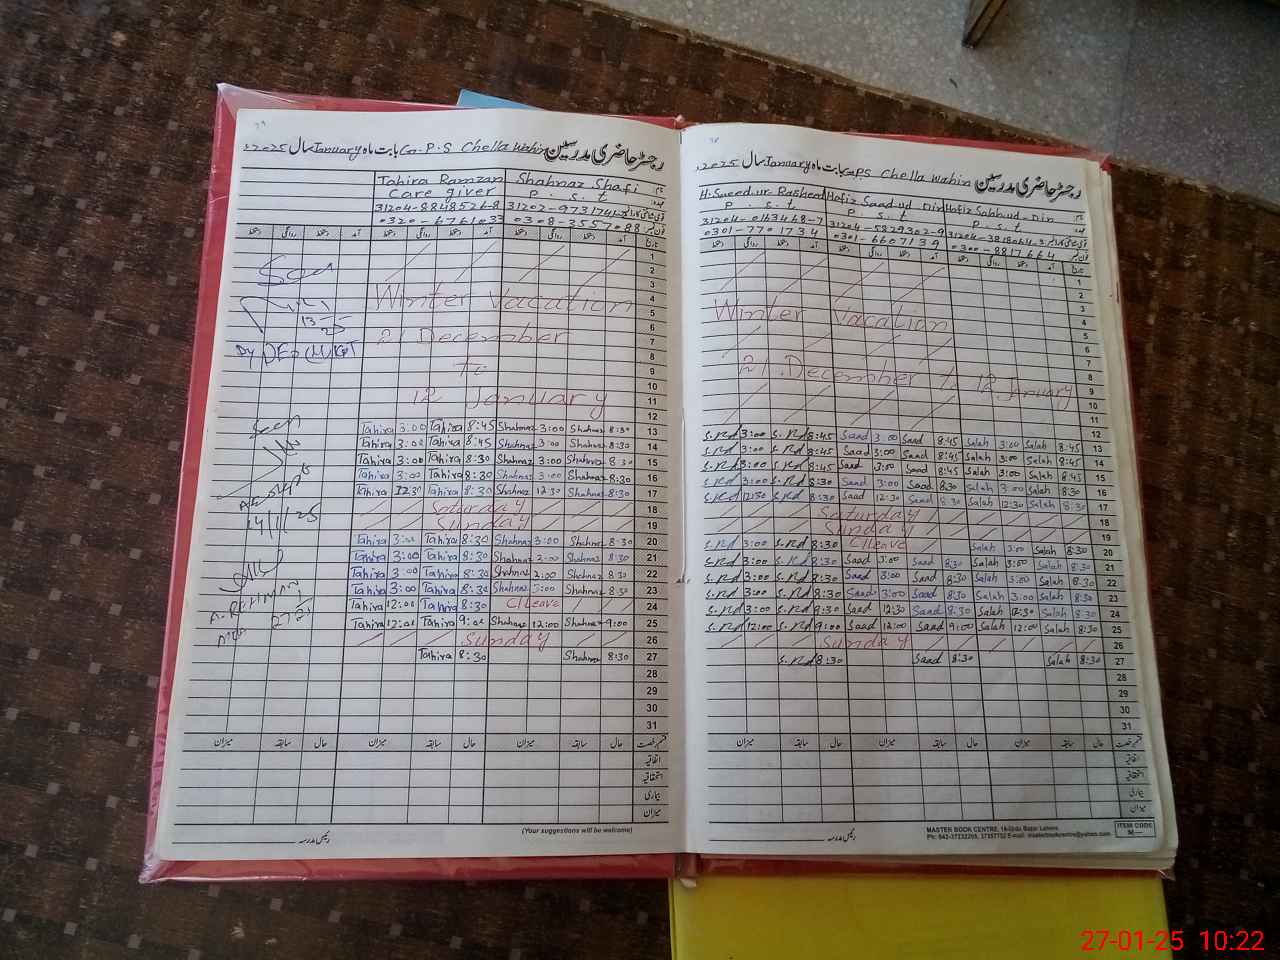 رجسٹر حاضری مدرسین G.P.S Chella Wahin بابت ماہ January سال 2025ء
Tahira Ramzan Shahnaz Shafi
Care giver P. S. t
31204-8848526-8
0320-6761033 0308-3557088
1
2
3
4 Winter Vacation
5
6
7 21 December
8
9 To
10
11 12 January
12
13 Tahira 3:00 Tahira 8:45 Shahnaz 3:00 Shahnaz 8:30
14 Tahira 3:00 Tahira 8:45 Shahnaz 3:00 Shahnaz 8:30
15 Tahira 3:00 Tahira 8:30 Shahnaz 3:00 Shahnaz 8:30
16 Tahira 3:00 Tahira 8:30 Shahnaz 3:00 Shahnaz 8:30
17 Tahira 12:30 Tahira 8:30 Shahnaz 12:30 Shahnaz 8:30
18 Saturday
19 Sunday
20 Tahira 3:00 Tahira 8:30 Shahnaz 3:00 Shahnaz 8:30
21 Tahira 3:00 Tahira 8:30 Shahnaz 3:00 Shahnaz 8:30
22 Tahira 3:00 Tahira 8:30 Shahnaz 3:00 Shahnaz 8:30
23 Tahira 3:00 Tahira 8:30 Shahnaz 3:00 Shahnaz 8:30
24 Tahira 12:00 Tahira 8:30 C/Leave
25 Tahira 12:00 Tahira 9:00 Shahnaz 12:00 Shahnaz 9:00
26 Sunday
27 Tahira 8:30 Shahnaz 8:30
28
29
30
31
میزان سابقہ حال میزان سابقہ حال میزان سابقہ حال قسم رخصت
اتفاقیہ
استحقاقیہ
بیماری
میزان
(Your suggestions will be welcome)
رئیس مدرسہ
Seen
13
Dy DEO
Seen
14/1/25
رجسٹر حاضری مدرسین GPS Chella Wahin بابت ماہ January سال 2025ء
H. Saeed ur Rasheed Hafiz Saad ud Din Hafiz Salah ud Din
P. S. t P. S. t P. S. t
31204-0163468-7 31204-5829302-9 31204-3818064-3
0301-7701734 0301-6607139 0300-8817664
1
2
3 Winter Vacation
4
5
6
7
8 21 December to 12 January
9
10
11
12
13 S.Rd 3:00 S.Rd 8:45 Saad 3:00 Saad 8:45 Salah 3:00 Salah 8:45
14 S.Rd 3:00 S.Rd 8:45 Saad 3:00 Saad 8:45 Salah 3:00 Salah 8:45
15 S.Rd 3:00 S.Rd 8:45 Saad 3:00 Saad 8:45 Salah 3:00 Salah 8:45
16 S.Rd 3:00 S.Rd 8:30 Saad 3:00 Saad 8:30 Salah 3:00 Salah 8:30
17 S.Rd 12:30 S.Rd 8:30 Saad 12:30 Saad 8:30 Salah 12:30 Salah 8:30
18 Saturday
19 Sunday
20 S.Rd 3:00 S.Rd 8:30 C/Leave Salah 3:00 Salah 8:30
21 S.Rd 3:00 S.Rd 8:30 Saad 3:00 Saad 8:30 Salah 3:00 Salah 8:30
22 S.Rd 3:00 S.Rd 8:30 Saad 3:00 Saad 8:30 Salah 3:00 Salah 8:30
23 S.Rd 3:00 S.Rd 8:30 Saad 3:00 Saad 8:30 Salah 3:00 Salah 8:30
24 S.Rd 3:00 S.Rd 8:30 Saad 12:30 Saad 8:30 Salah 12:30 Salah 8:30
25 S.Rd 12:00 S.Rd 9:00 Saad 12:00 Saad 9:00 Salah 12:00 Salah 8:30
26 Sunday
27 S.Rd 8:30 Saad 8:30 Salah 8:30
28
29
30
31
میزان سابقہ حال میزان سابقہ حال میزان سابقہ حال قسم رخصت
اتفاقیہ
استحقاقیہ
بیماری
میزان
MASTER BOOK CENTRE, 18-Urdu Bazar Lahore.
ITEM CODE
M—
رئیس مدرسہ
27-01-25 10:22